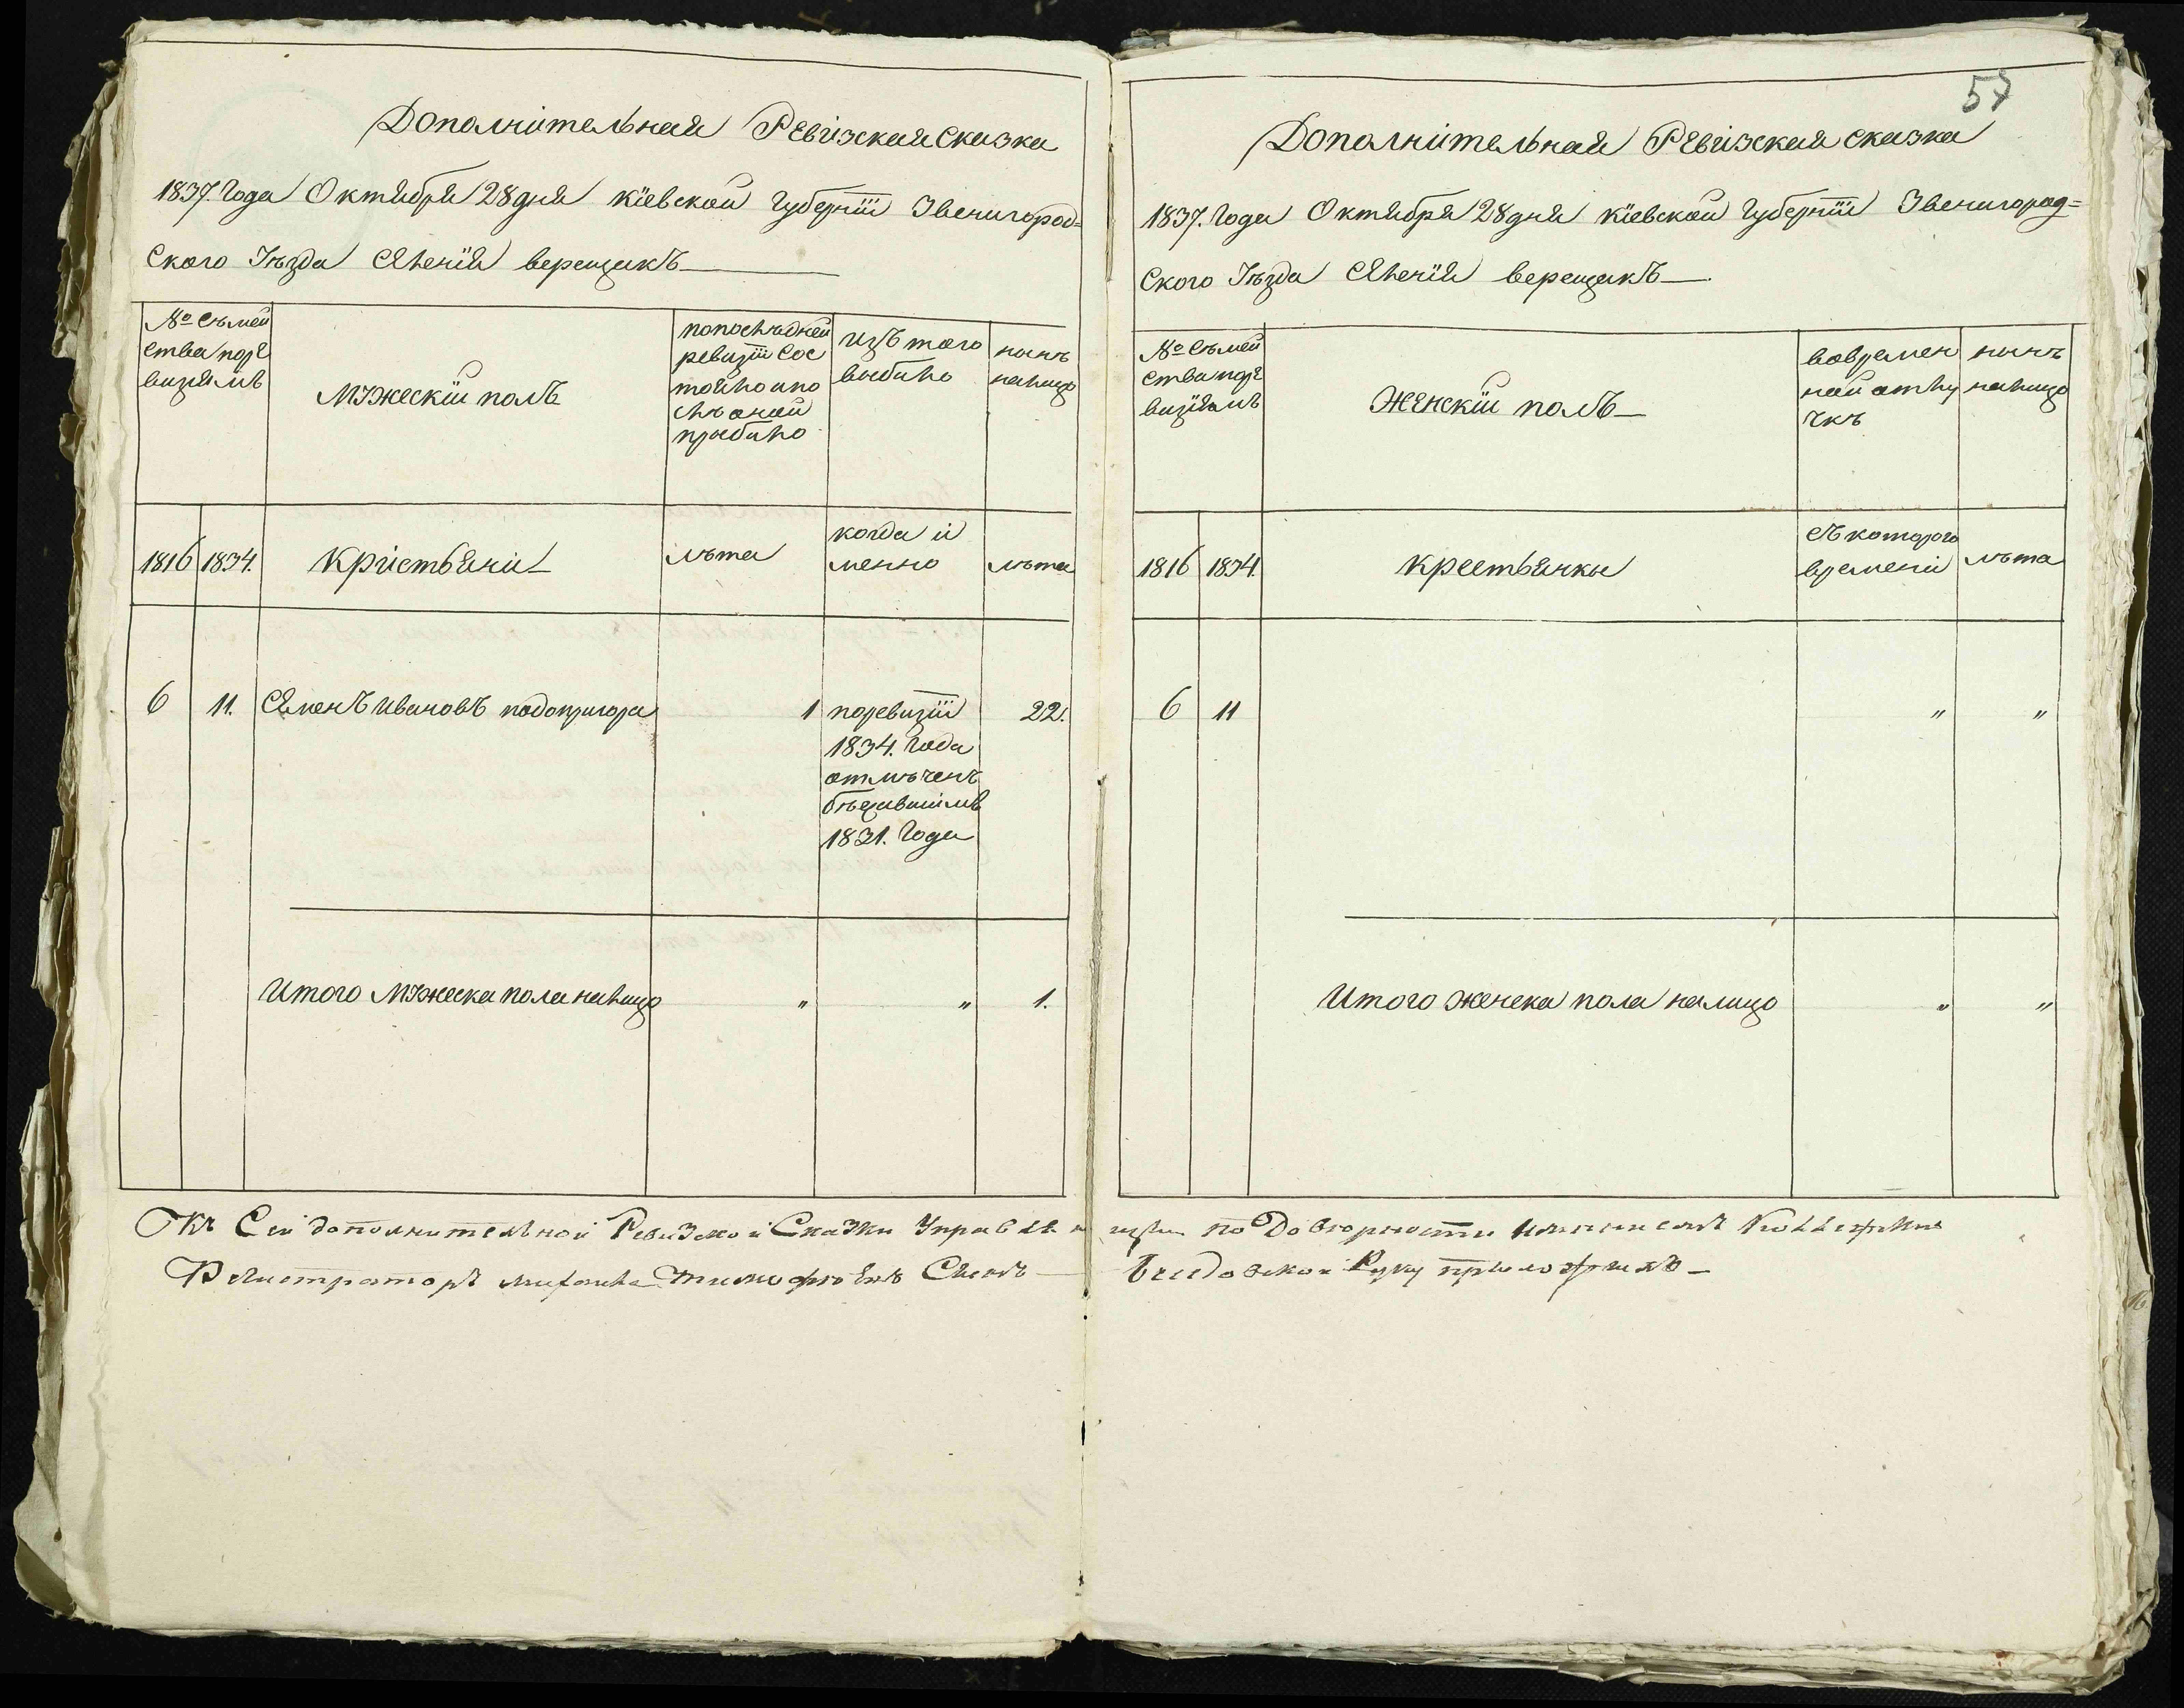 Дополнительная Ревизская Сказка
1837. Года Октября 28 дня Кіевской Губерніи Звенигород=
ского Уѣзда Селенія верещакъ
№ Съмей
ства по ре
визіямъ
Мужескій полъ
по послѣдней
ревизіи Сос
тояло и по
слѣ оной
прибыло
изъ того
выбыло
нынѣ
налицо
1816 1834. Кристьяни лѣта когда и
менно лѣта
6 11. Семенъ Ивановъ подопригора 1 по ревизіи 22.
1834. Года
отмѣченъ
бѣжавшимъ
1831. Года
Итого Мужеска пола налицо " " 1.
57
Дополнительная Ревизская Сказка
1837. Года Октября 28 дня Кіевской Губерніи Звенигород=
ского Уѣзда Селенія верещакъ
№ Съмей
ства по ре
визіямъ
Женскій полъ
во времен
ной отлу
чкѣ
нынѣ
налицо
1816 1834. Крестьянки съ которого
времени лѣта
6 11 " "
Итого женска пола налицо " "
Къ Сей дополнительной Ревизской Сказки Управляющий по Довѣрности имением
Регистраторъ Тимофѣевъ Руку приложилъ